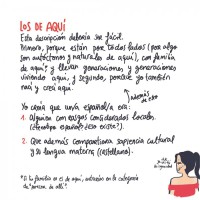 LOS DE AQUÍ
Esta descripción debería ser fácil.
Primero, porque están por todos lados (por algo
son autóctonos y naturales de aquí), con familia
de aquí y llevar generaciones, y generaciones
viviendo aquí, y segundo, porque yo también
nací y crecí aquí.
Además de esto
Yo creía que un/a español/a era:
1. Alguien con rasgos considerados locales.
(¿fenotipo español? ¿eso existe?).
2. Que además compartíamos sapiencia cultural
y su lengua materna (castellano).
*A la familia no es de aquí, entrarían en la categoría
de "persona de allí".